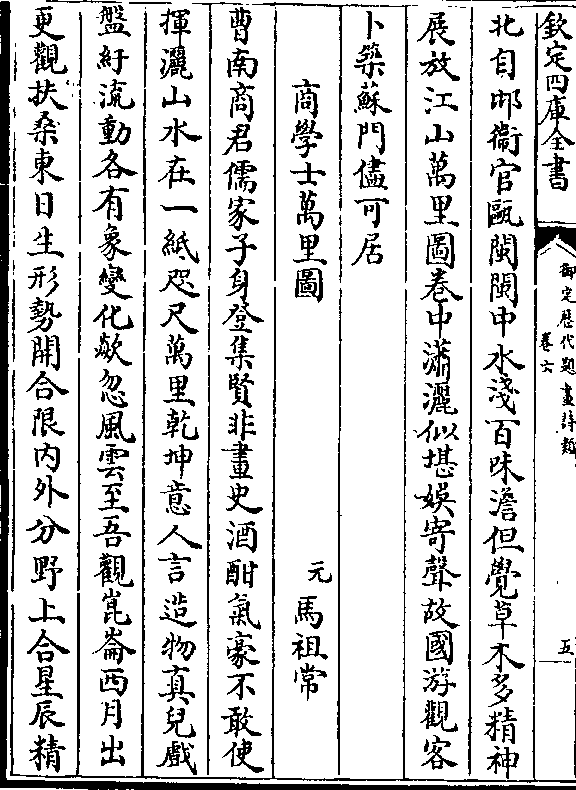 欽定四庫全書
御定歷代題畫詩類
卷六
五
北自邙衞官甌閩閩中水淺百味澹但覺草木多精神
展放江山萬里圖卷中瀟灑似堪娛寄聲故國游觀客
卜築蘇門儘可居
商學士萬里圖
元 馬祖常
曹南商君儒家子身登集賢非畫史酒酣氣豪不敢使
揮灑山水在一紙咫尺萬里乾坤意人言造物真兒戲
盤紆流動各有象變化歘忽風雲至吾觀崑崙西月出
更觀扶桑東日生形勢開合限内外分野上合星辰精